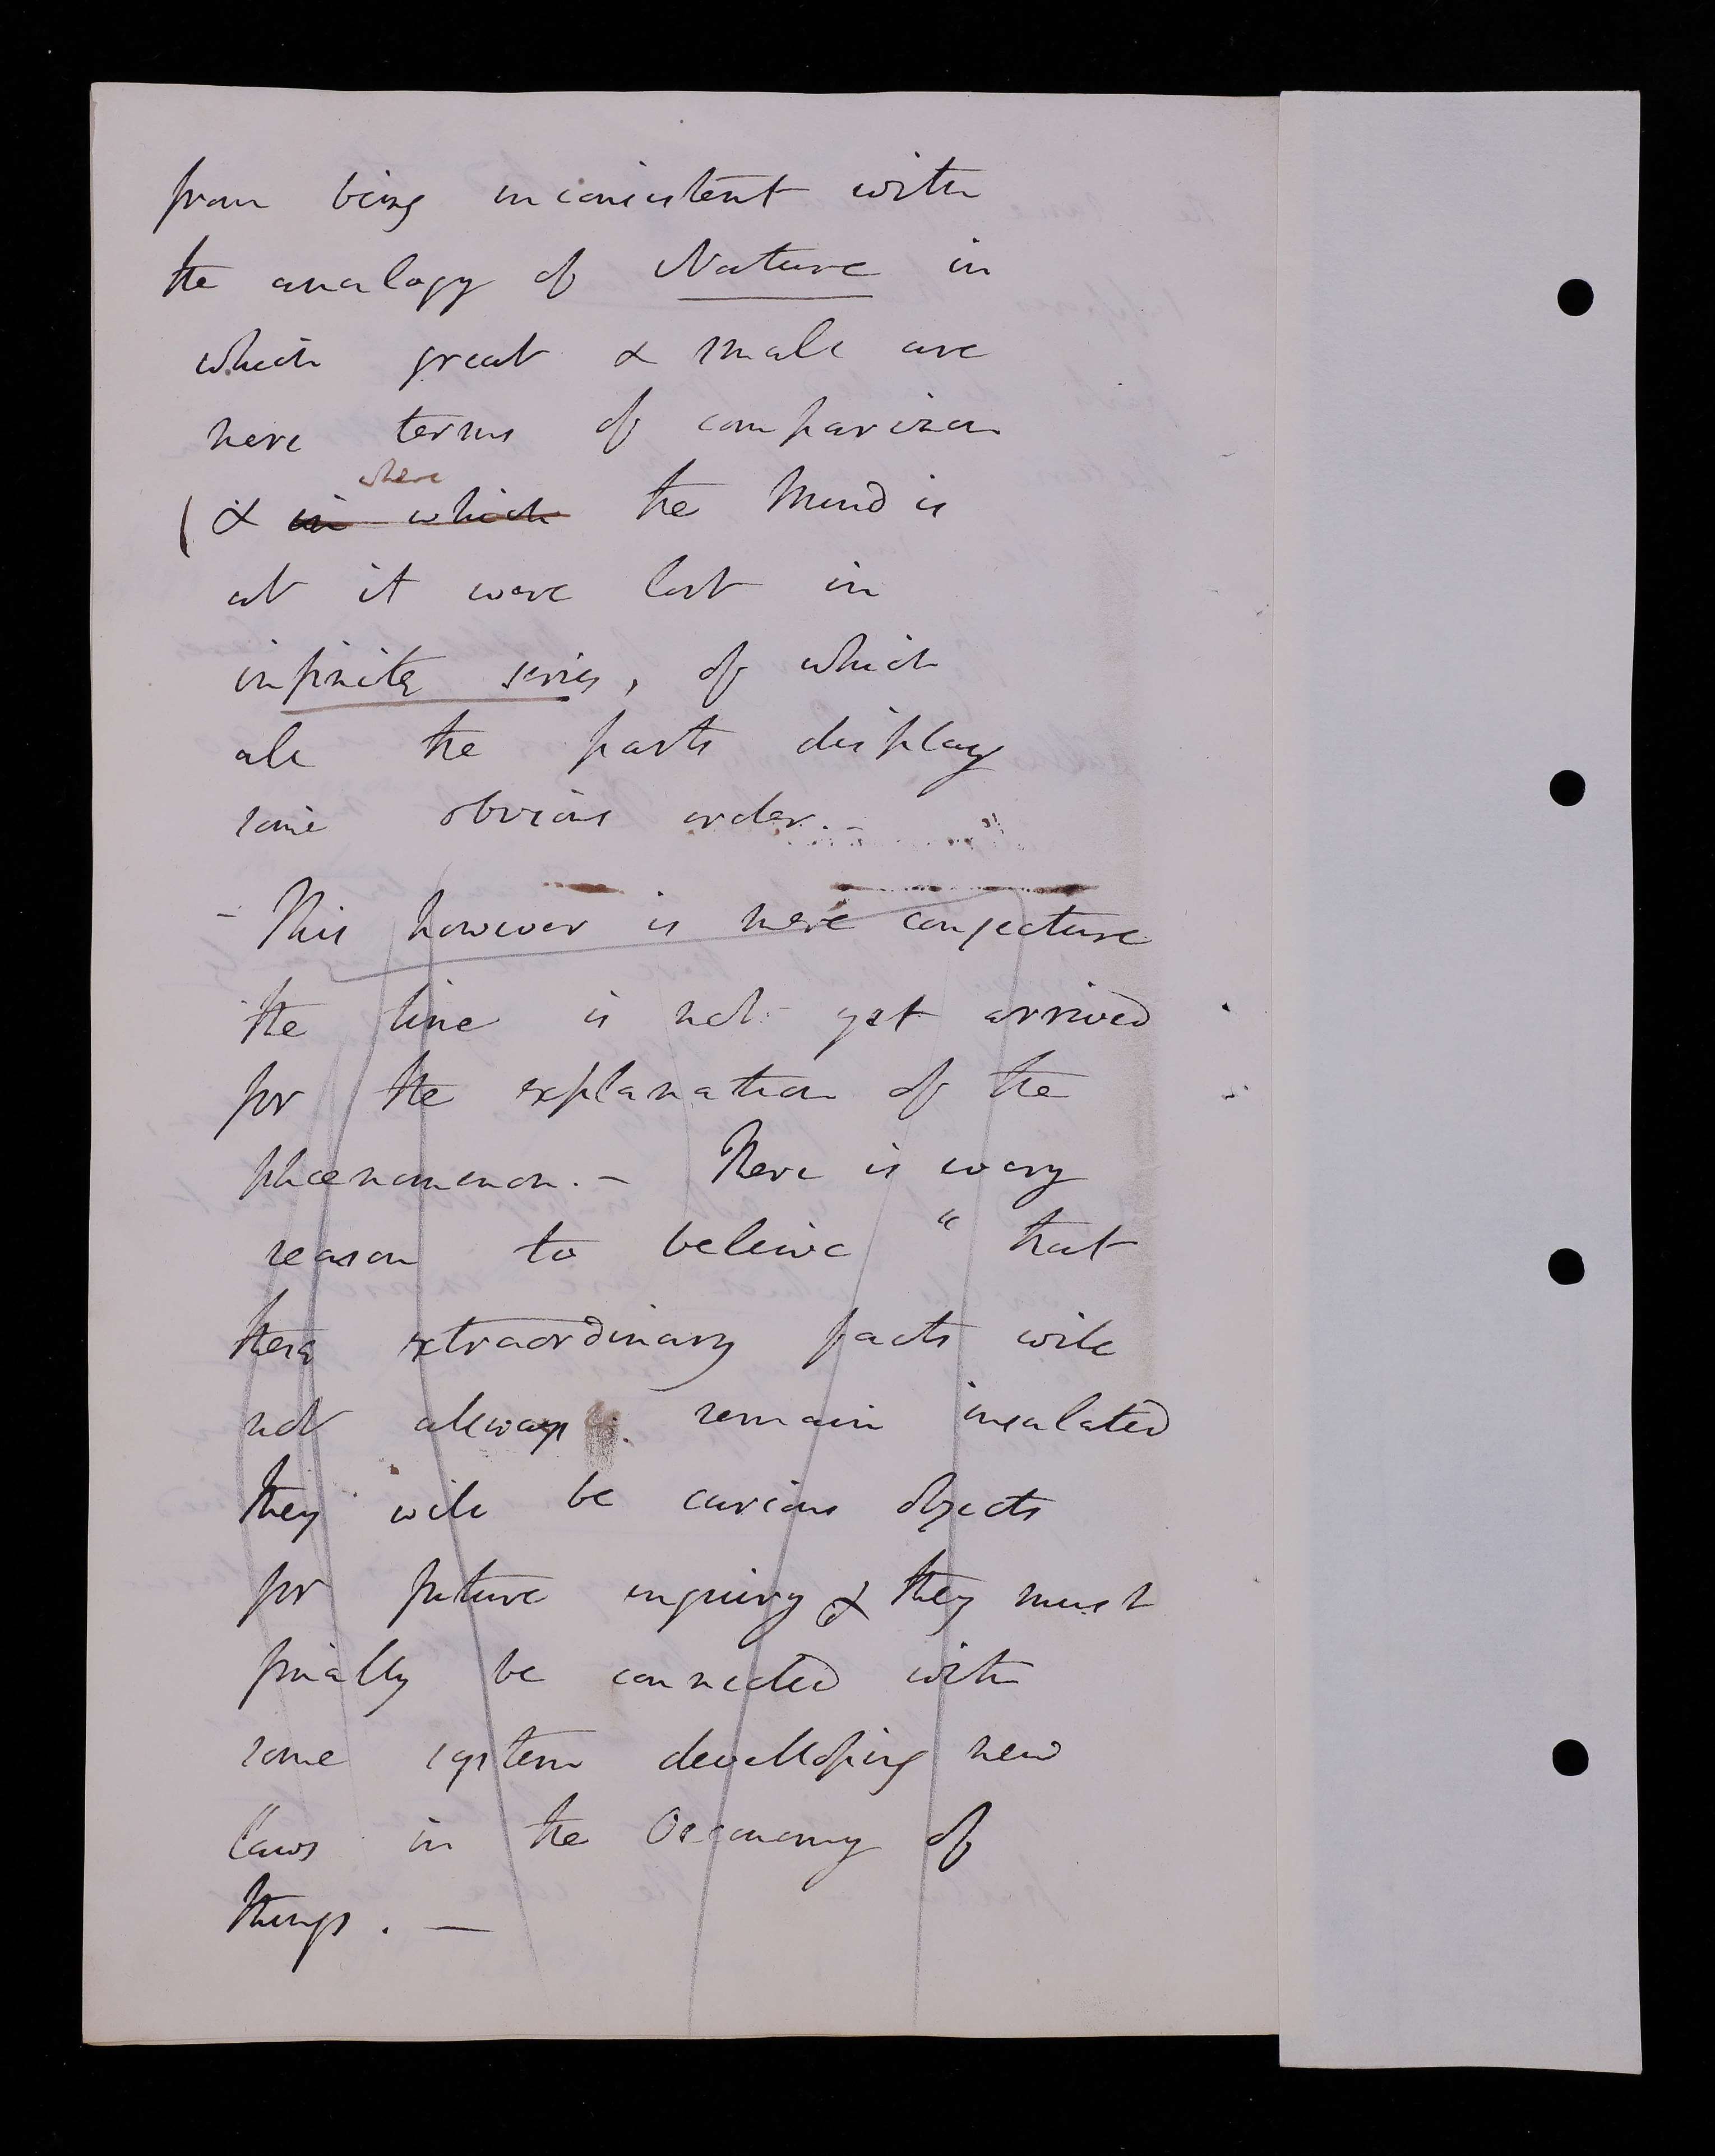 from being inconsistent with
the analogy of Nature in
which great & small are
here terms of comparison
where
(& in which the Mind is
as it were lost in
infinite series, of which
all the parts display
some obvious order. -
- This however is mere conjecture
the time is not yet arrived
for the explanation of the
phœnomenon. - There is every
reason to believe " that
these extraordinary facts will
not allways remain insulated
they will be curious objects
for future inquiry & they must
finally be connected with
some system developing new
laws in the Oeconomy of
things. —